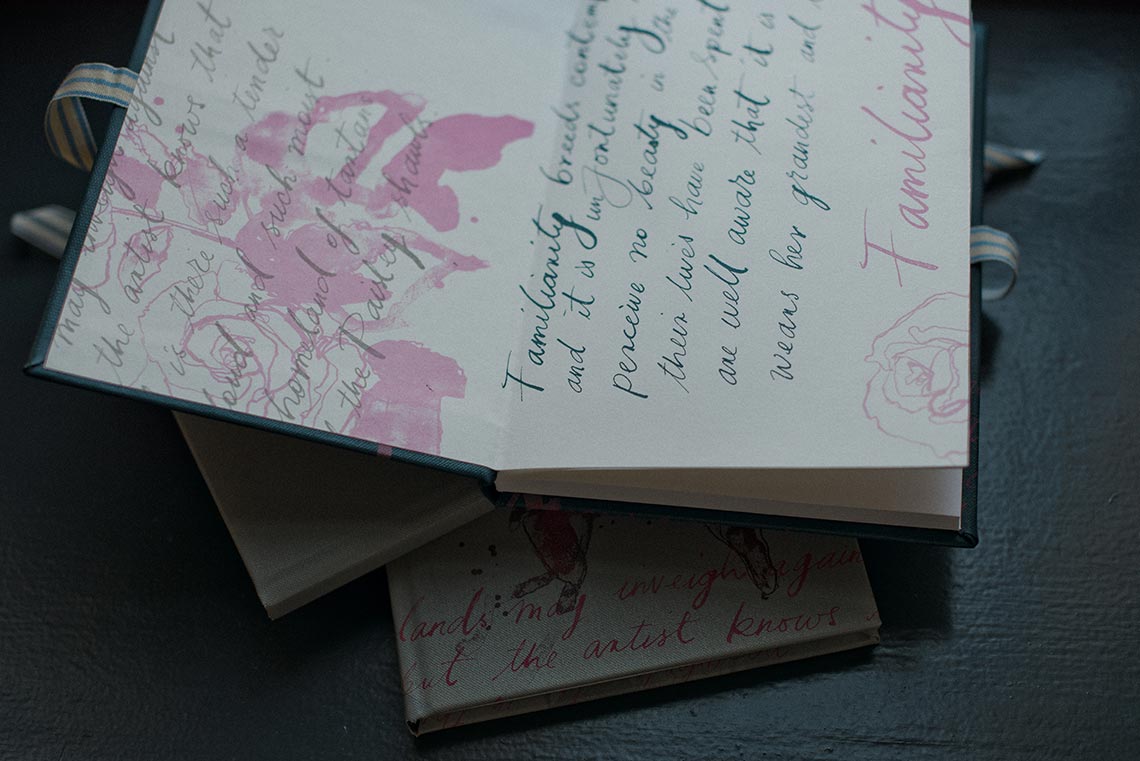 may inveigh against
the artist knows that
is there such a tender
cloud and such moist
homeland of tartan
the Paisley shawls.
Familiarity breeds contem
and it is unfortunately
perceive no beauty in the
their lives have been spent
are well aware that it is
weans her grandest and
Familiarity
lands may inveigh again
but the artist knows